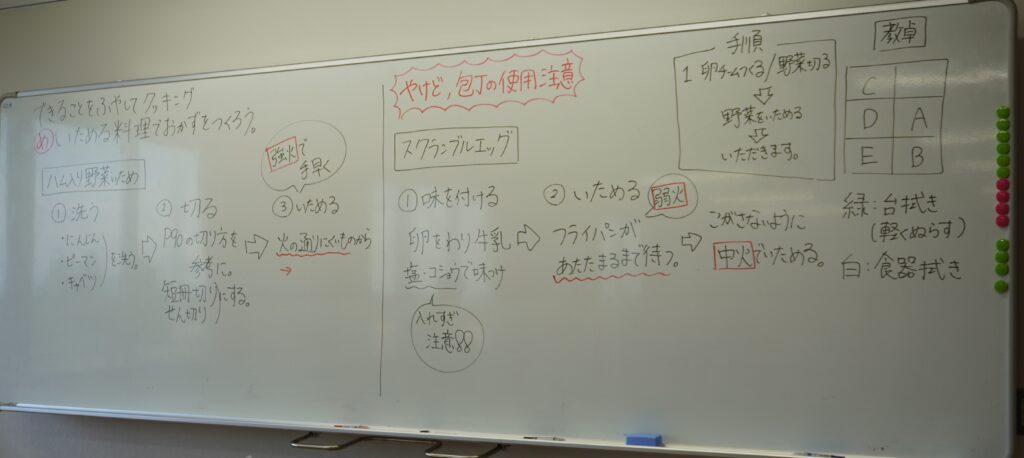 できることをふやしてクッキング
め いためる料理でおかずをつくろう。
ハム入り野菜いため
① 洗う
・にんじん
・ピーマン
・キャベツ
を洗う。
② 切る
の切り方を
参考に。
短冊切り
せん切り
にする。
強火で
手早く
③ いためる
火の通りにくいものから
→
やけど,包丁の使用注意
スクランブルエッグ
① 味を付ける
卵をわり牛乳
塩・コショウで味つけ
入れすぎ
注意!!
② いためる
弱火
フライパンが
あたたまるまで待つ。
こがさないように
中火でいためる。
手順
1 卵チームつくる/野菜切る
野菜をいためる
いただきます。
教卓
C
D A
E B
緑:台拭き
(軽くぬらす)
白:食器拭き